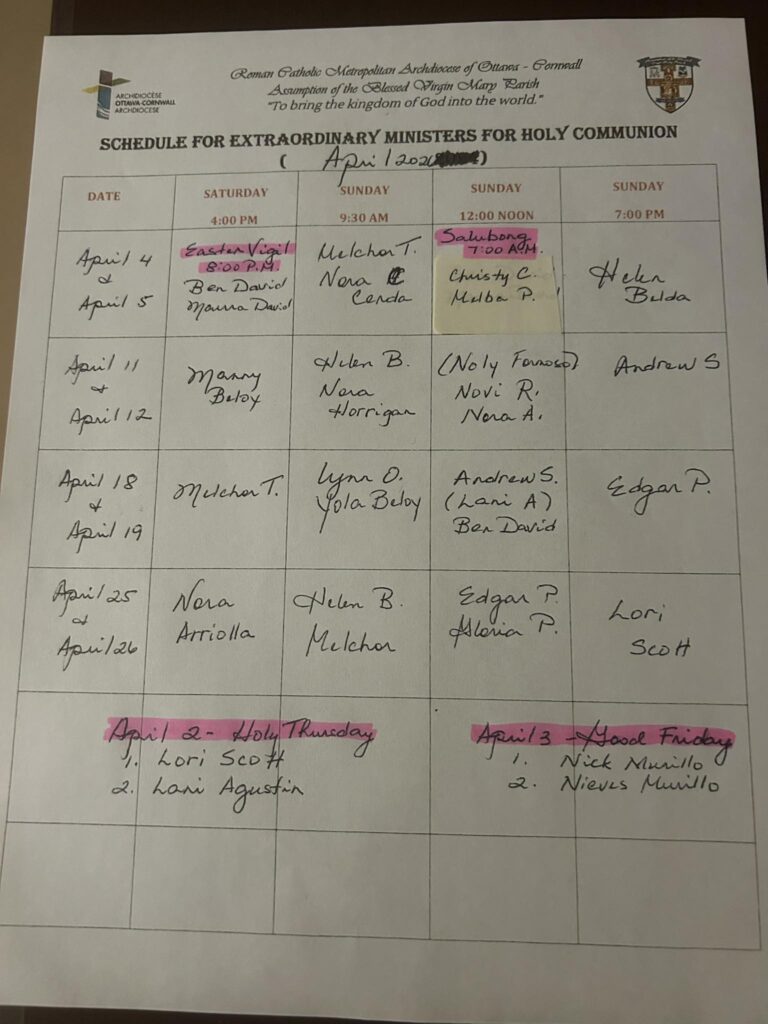 Roman Catholic Metropolitan Archdiocese of Ottawa - Cornwall
Assumption of the Blessed Virgin Mary Parish
"To bring the kingdom of God into the world."
ARCHDIOCESE
OTTAWA-CORNWALL
ARCHDIOCESE
SCHEDULE FOR EXTRAORDINARY MINISTERS FOR HOLY COMMUNION
( April 2026 )
DATE
SATURDAY
4:00 PM
SUNDAY
9:30 AM
SUNDAY
12:00 NOON
SUNDAY
7:00 PM
April 4
&
April 5
Easter Vigil
8:00 P.M.
Ben David
Maura David
Melchor T.
Nora C
Cerda
Salubong
7:00 A.M.
Christy C.
Melba P.
Helen
Belda
April 11
&
April 12
Manny
Beloy
Helen B.
Nora
Horrigan
(Noly Formoso)
Novi R.
Nora A.
Andrew S
April 18
&
April 19
Melchor T.
Lynn O.
Yola Beloy
Andrew S.
(Lani A)
Ben David
Edgar P.
April 25
&
April 26
Nora
Arriolla
Helen B.
Melchor
Edgar P.
Gloria P.
Lori
Scott
April 2 - Holy Thursday
1. Lori Scott
2. Lani Agustin
April 3 - Good Friday
1. Nick Murillo
2. Nieves Murillo